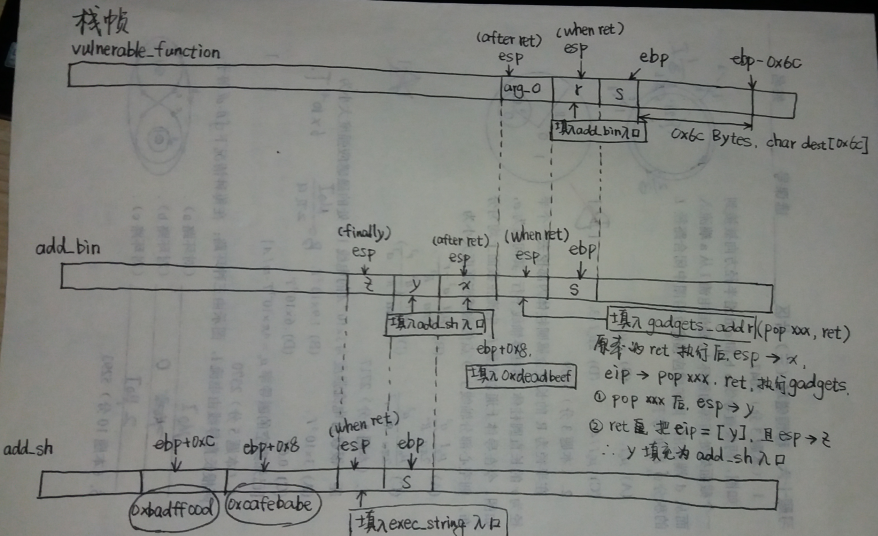 栈帧
vulnerable_function
(after ret)
esp
(when ret)
esp
ebp
ebp-0x6C
arg_0
r
s
填入add_bin入口
0x6C Bytes, char dest[0x6C]
add_bin
(finally)
esp
(after ret)
esp
(when ret)
esp
ebp
z
y
x
s
填入add_sh入口
填入gadgets_addr (pop xxx, ret)
ebp+0x8.
填入0xdeadbeef
原本的ret执行后, esp→x,
eip→pop xxx. ret, 执行gadgets.
① pop xxx后, esp→y
② ret 把eip=[y], 且esp→z
∴ y填充为add_sh入口
add_sh
ebp+0xC
ebp+0x8
(when ret)
esp
ebp
s
0xbadff00d
0xcafebabe
填入exec_string入口